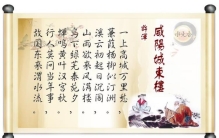 咸陽城東樓
許渾
一上高城万里愁
蒹葭杨柳似汀洲
溪云初起日沉阁
山雨欲来风满楼
鸟下绿芜秦苑夕
蝉鸣黄叶汉宫秋
行人莫问当年事
故国东来渭水流